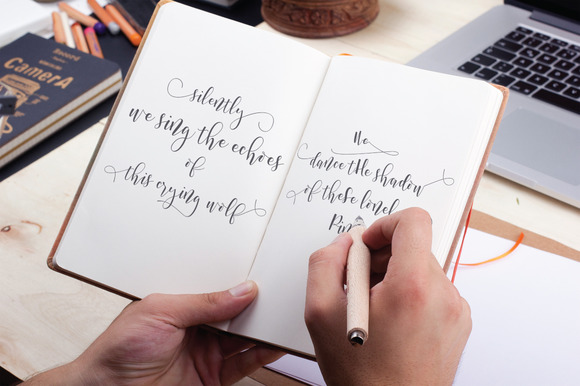 Record
CamerA
silently
we sing the echoes
of
this crying wolf
We
dance the shadow
of these lonel